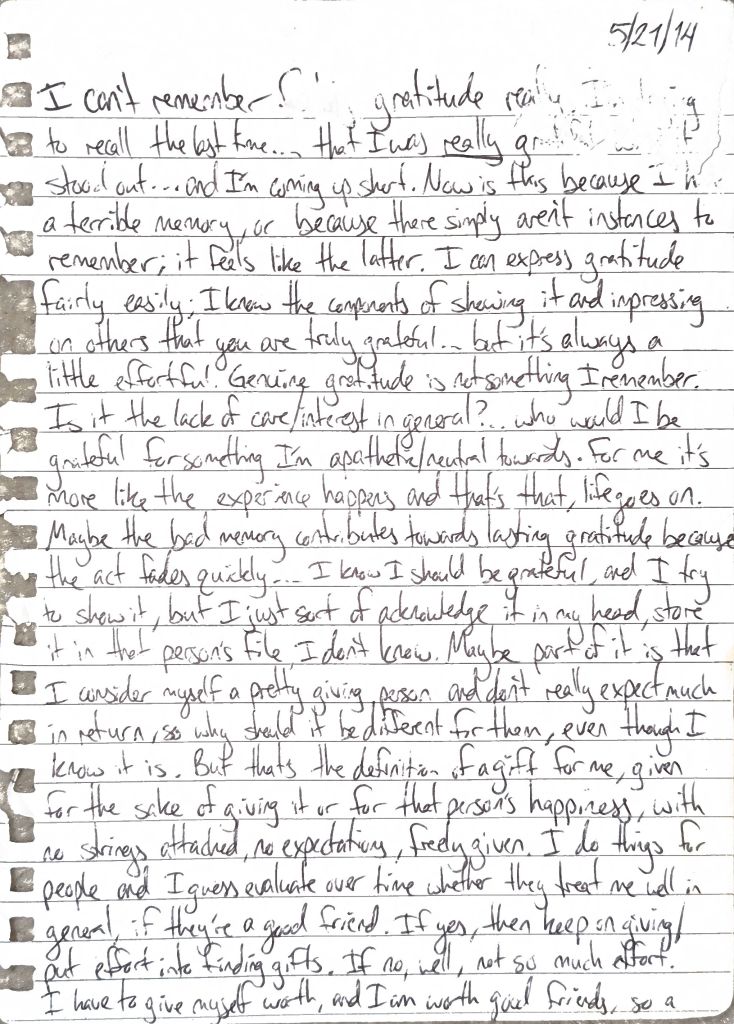 5/21/14
I can't remember gratitude
to recall the last time... that I was really
stood out... and I'm coming up short. Now is this because I
a terrible memory, or because there simply aren't instances to
remember; it feels like the latter. I can express gratitude
fairly easily; I know the components of showing it and impressing
on others that you are truly grateful... but it's always a
little effortful. Genuine gratitude is not something I remember.
Is it the lack of care/interest in general?... who would I be
grateful for something I'm apathetic/neutral towards. For me it's
more like the experience happens and that's that, life goes on.
Maybe the bad memory contributes towards lasting gratitude because
the act fades quickly... I know I should be grateful, and I try
to show it, but I just sort of acknowledge it in my head, store
it in that person's file, I don't know. Maybe part of it is that
I consider myself a pretty giving person and don't really expect much
in return, so why should it be different for them, even though I
know it is. But that's the definition of a gift for me, given
for the sake of giving it or for that person's happiness, with
no strings attached, no expectations, freely given. I do things for
people and I guess evaluate over time whether they treat me well in
general, if they're a good friend. If yes, then keep on giving/
put effort into finding gifts. If no, well, not so much effort.
I have to give myself worth, and I am worth good friends, so a